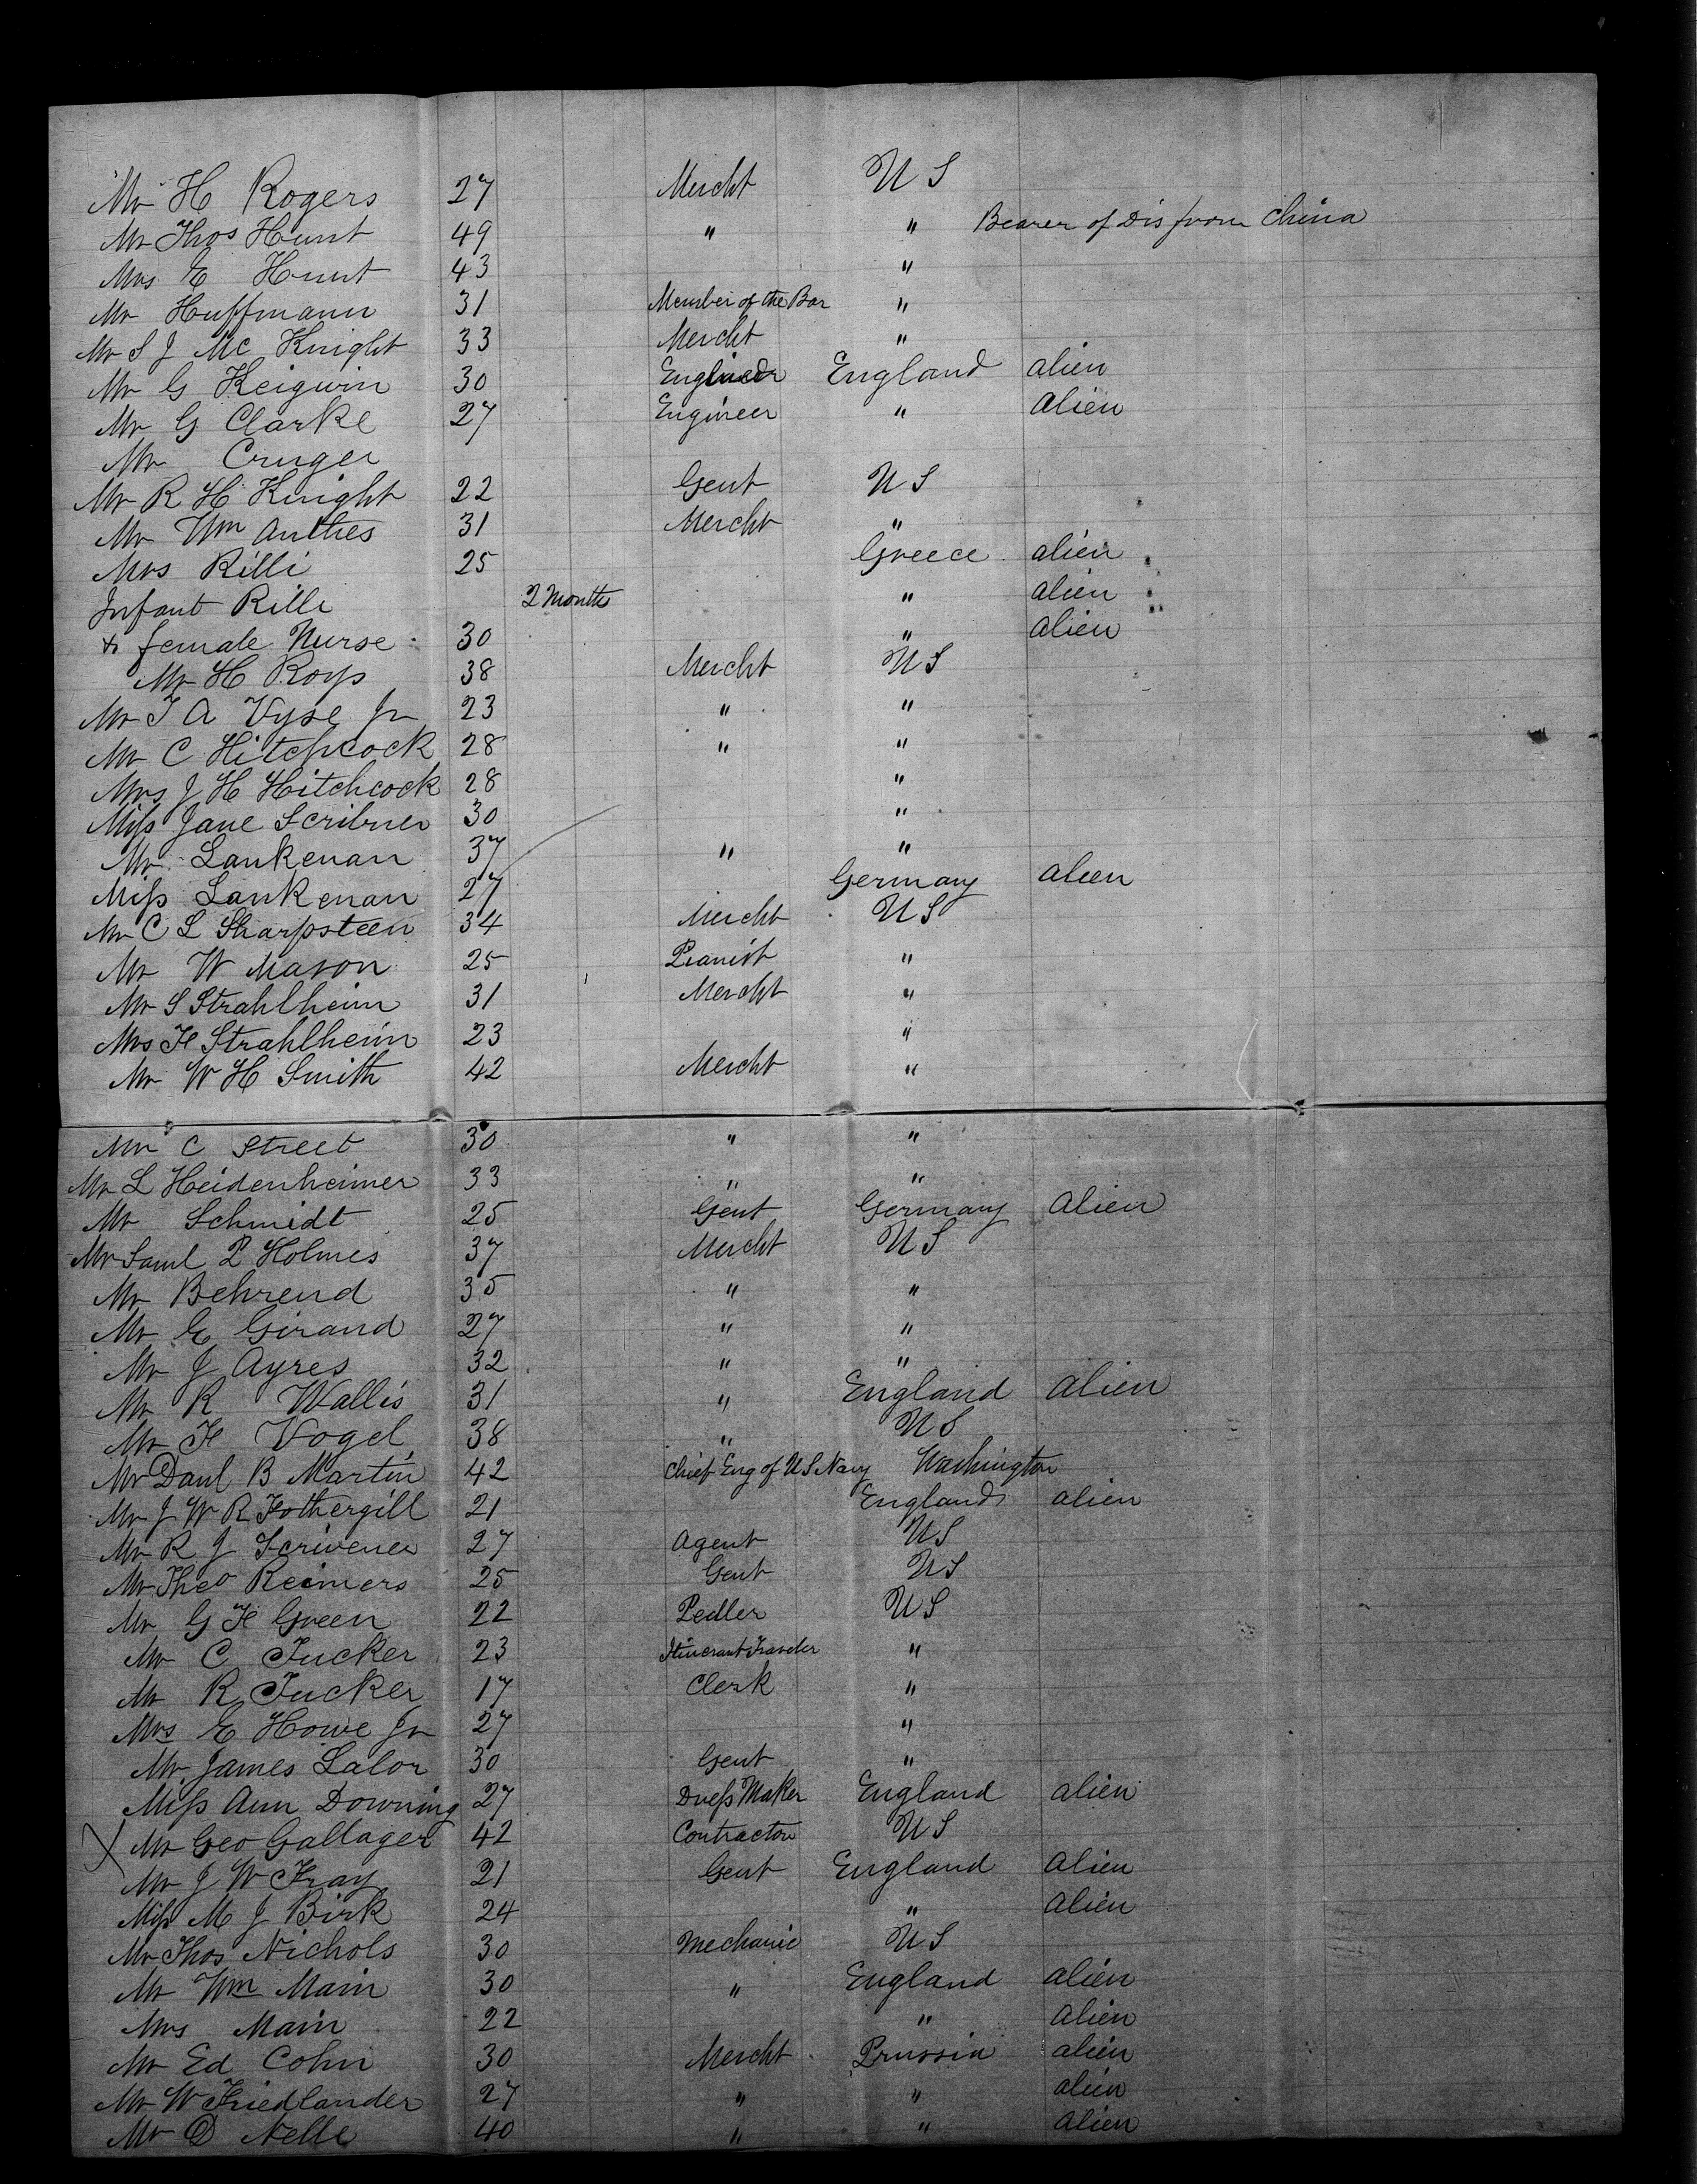 Mr H Rogers 27 Mercht U S
Mr Thos Hunt 49 " " Bearer of Dis from China
Mrs E Hunt 43 "
Mr Huffmann 31 Member of the Bar "
Mr S J Mc Knight 33 Mercht "
Mr G Keigwin 30 Engineer England alien
Mr G Clarke 27 Engineer " alien
Mr Cruger
Mr R H Knight 22 Gent U S
Mr Wm Anthes 31 Mercht "
Mrs Rilli 25 Greece alien
Infant Rilli 2 Months " alien
& female Nurse 30 " alien
Mr H Roys 38 Mercht U S
Mr T A Vyse Jr 23 " "
Mr C Hitchcock 28 " "
Mrs J H Hitchcock 28 "
Miss Jane Scribner 30 "
Mr Lankenan 37 " "
Miss Lankenan 27 Germany alien
Mr C L Sharpsteen 34 Mercht U S
Mr W Mason 25 Pianist "
Mr S Strahlheim 31 Mercht "
Mrs F Strahlheim 23 "
Mr W H Smith 42 Mercht "
Mr C Street 30 " "
Mr L Heidenheimer 33 " "
Mr Schmidt 25 Gent Germany alien
Mr Saml P Holmes 37 Mercht U S
Mr Behrend 35 " "
Mr E Girand 27 " "
Mr J Ayres 32 " "
Mr R Wallis 31 " England alien
Mr F Vogel 38 " U S
Mr Danl B Martin 42 Chief Eng of U S Navy Washington
Mr J W R Fothergill 21 England alien
Mr R J Scrivener 27 Agent U S
Mr Theo Reimers 25 Gent U S
Mr G F Green 22 Pedler U S
Mr C Tucker 23 Itinerant Traveler "
Mr R Tucker 17 Clerk "
Mrs E Howe Jr 27 "
Mr James Lalor 30 Gent "
Miss Ann Downing 27 Dress Maker England alien
X Mr Geo Gallager 42 Contractor U S
Mr J W Fray 21 Gent England alien
Miss M J Birk 24 " alien
Mr Thos Nichols 30 Mechanic U S
Mr Wm Main 30 " England alien
Mrs Main 22 " alien
Mr Ed Cohn 30 Mercht Prussia alien
Mr W Friedlander 27 " " alien
Mr D Nelle 40 " " alien